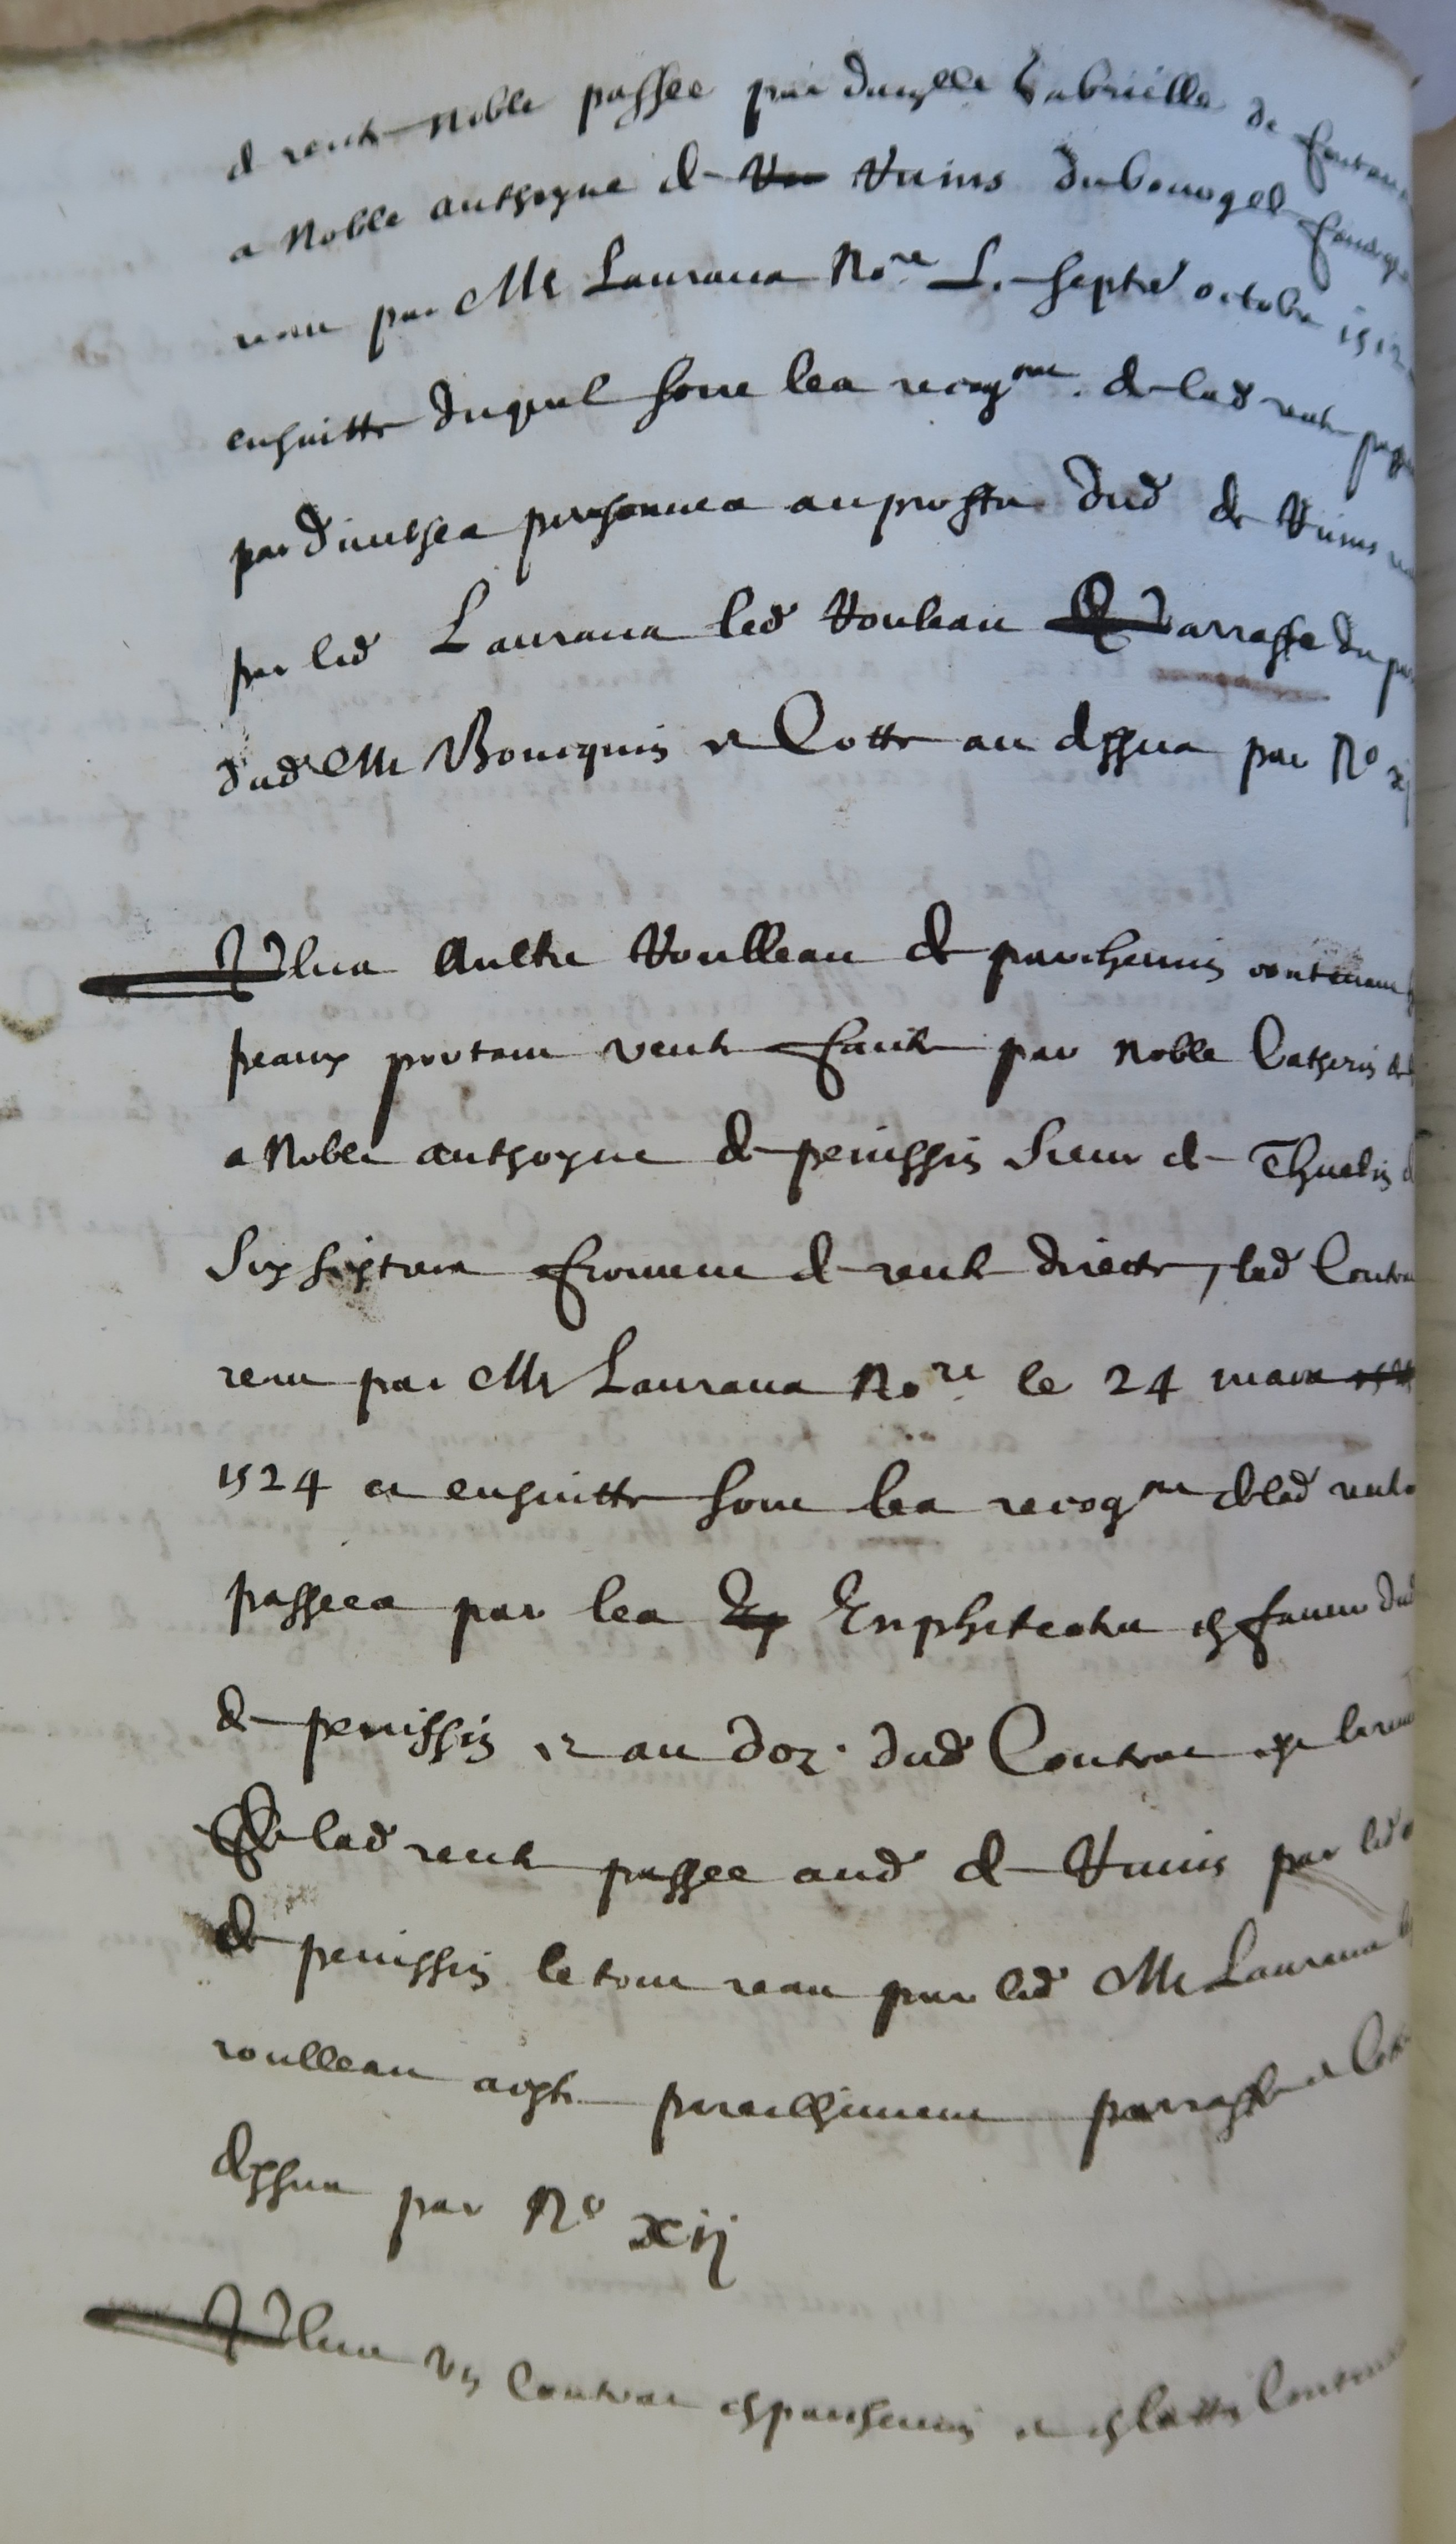 de rente Noble passee par damlle Gabrielle de
a Noble anthoyne de Vu Vuins du bourget
receu par Me Laurans Nore Le septe octobre
ensuitte duquel sont les recognce de lad rente
par diverses personnes au proffit dud de Vuins
par led Laurans led Rouleau parraffe du
dud Me Bourquin et Cotte au dessus par No
Plus aultre Roulleau de parchemin contenant
peaux portant vente faicte par Noble Catherin
a Noble anthoyne de penissin Sieur de Thuelin
Six sixtiers froment de rente directe, led Contra
receu par Me Laurans Nore le 24 mars
1524 et ensuitte sont les recognce de lad rente
passees par les Emphiteotes en faveur dud
de penissin et au doz dud Contrat est
de lad rente passee aud de Vuins par led
de penissin le tout receu par led Me Laurans
roulleau aussy pareillement parraffe et Cotte
dessus par No xij
Plus un Contrat en parchemin et en lattin